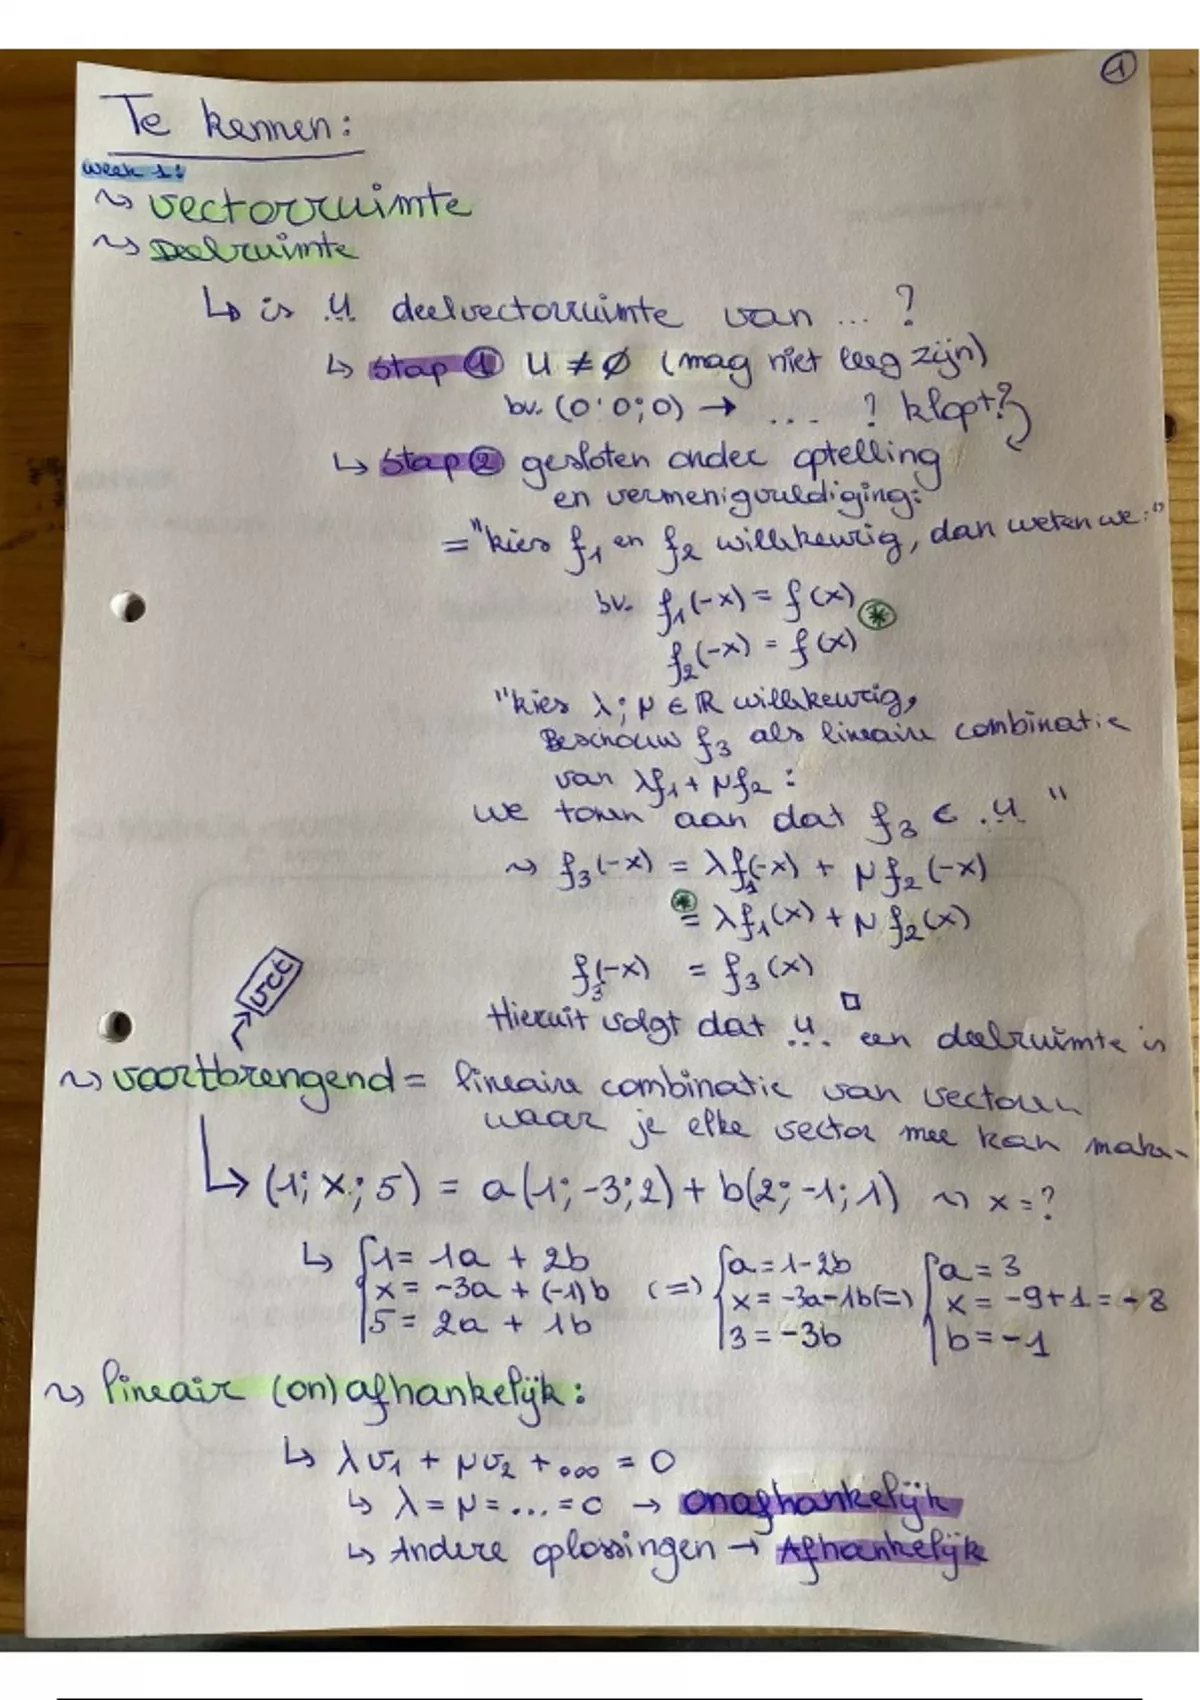 1
Te kennen:
week 1:
~> vectorruimte
~> Deelruimte
↳ is U deelvectorruimte van ... ?
↳ Stap ① U ≠ ∅ (mag niet leeg zijn)
bv. (0;0;0) → ... ? klopt?
↳ Stap ② gesloten onder optelling
en vermenigvuldiging:
= "kies f₁ en f₂ willekeurig, dan weten we:"
bv. f₁(-x) = f(x)
f₂(-x) = f(x) ⊛
"kies λ; μ ∈ ℝ willekeurig,
Beschouw f₃ als lineaire combinatie
van λf₁ + μf₂ :
we tonen aan dat f₃ ∈ U "
~> f₃(-x) = λf₁(-x) + μf₂(-x)
⊛ = λf₁(x) + μf₂(x)
f₃(-x) = f₃(x)
□
Hieruit volgt dat U een deelruimte is
vct
~> voortbrengend = lineaire combinatie van vectoren
waar je elke vector mee kan maken
↳ (1; x; 5) = a(1; -3; 2) + b(2; -1; 1) ~> x = ?
↳ {1 = 1a + 2b {a = 1-2b {a = 3
x = -3a + (-1)b (=) x = -3a-1b (=) x = -9+1 = -8
5 = 2a + 1b 3 = -3b b = -1
~> lineair (on)afhankelijk:
↳ λv₁ + μv₂ + ... = 0
↳ λ = μ = ... = 0 → onafhankelijk
↳ Andere oplossingen → Afhankelijk